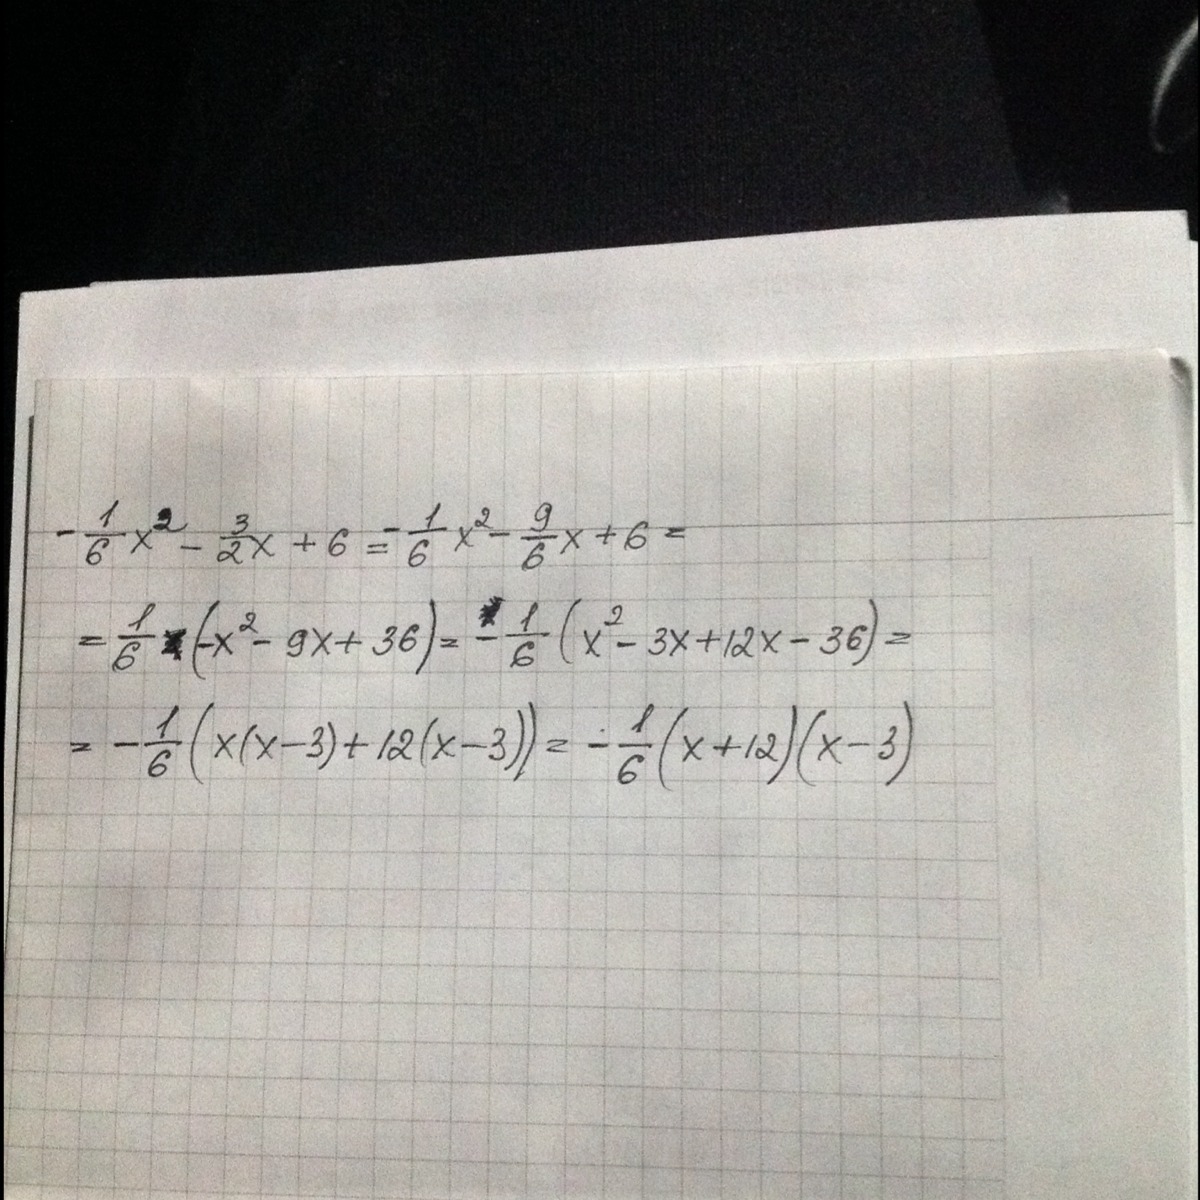 -1/6 x² - 3/2 x + 6 = -1/6 x² - 9/6 x + 6 =
= 1/6 (-x² - 9x + 36) = -1/6 (x² - 3x + 12x - 36) =
= -1/6 (x(x-3) + 12(x-3)) = -1/6 (x+12)(x-3)